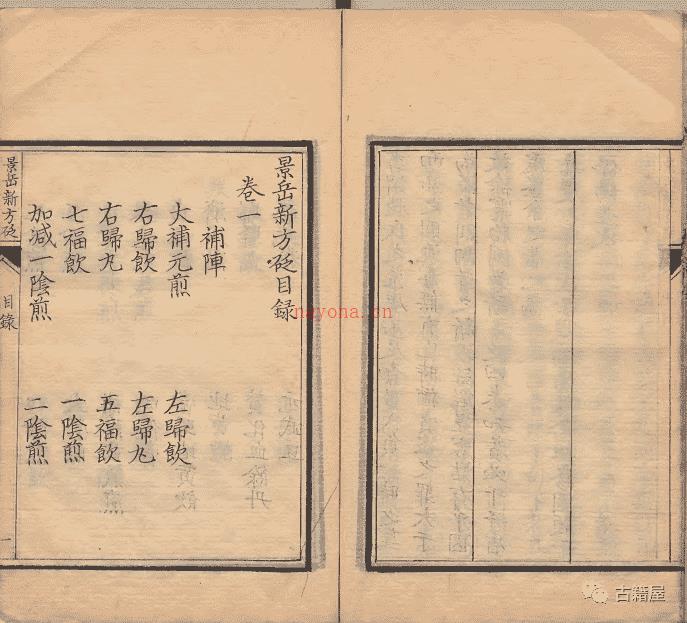 景岳新方砭目錄
卷一
補陣
大補元煎　左歸飲
右歸飲　左歸丸
右歸丸　五福飲
七福飲　一陰煎
加減一陰煎　二陰煎
景岳新方砭　目錄　一
nayona.cn
古籍屋